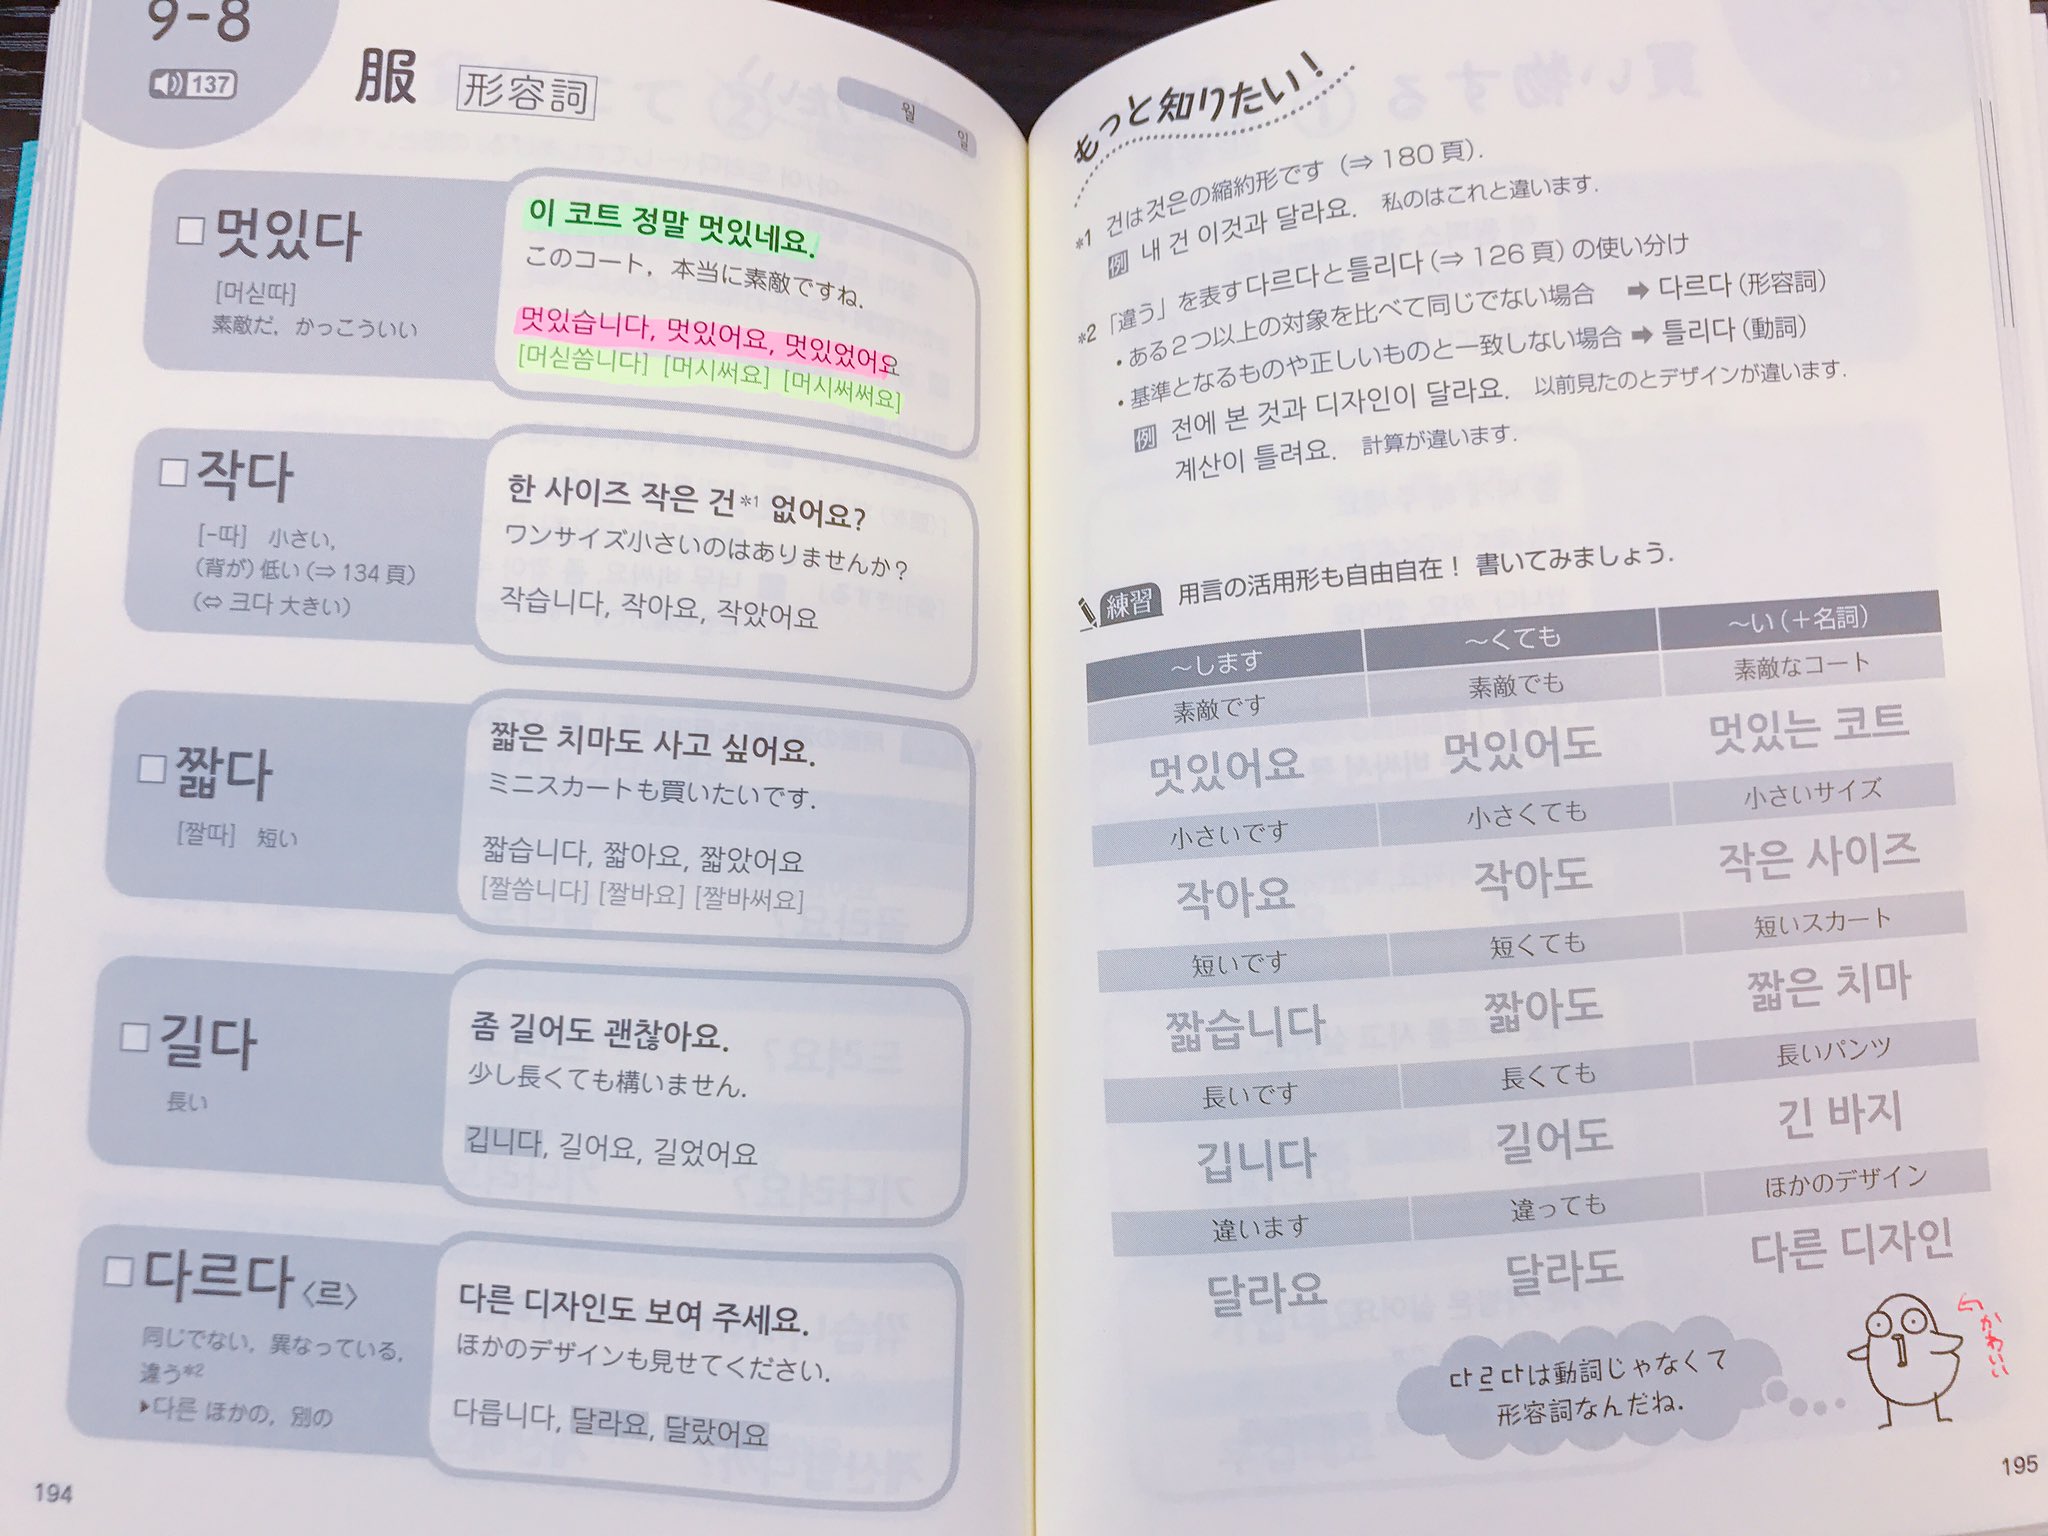 9-8
137
服 形容詞
월 일
멋있다
[머싣따]
素敵だ，かっこういい
이 코트 정말 멋있네요.
このコート，本当に素敵ですね．
멋있습니다, 멋있어요, 멋있었어요
[머싣씀니다] [머시써요] [머시써써요]
작다
[-따] 小さい，
(背が)低い(⇒134頁)
(⇔ 크다 大きい)
한 사이즈 작은 건*1 없어요?
ワンサイズ小さいのはありませんか？
작습니다, 작아요, 작았어요
짧다
[짤따] 短い
짧은 치마도 사고 싶어요.
ミニスカートも買いたいです．
짧습니다, 짧아요, 짧았어요
[짤씀니다] [짤바요] [짤바써요]
길다
長い
좀 길어도 괜찮아요.
少し長くても構いません．
깁니다, 길어요, 길었어요
다르다〈르〉
同じでない，異なっている，
違う*2
▶다른 ほかの，別の
다른 디자인도 보여 주세요.
ほかのデザインも見せてください．
다릅니다, 달라요, 달랐어요
194
もっと知りたい！
*1 건は것은の縮約形です（⇒180頁）．
例 내 건 이것과 달라요． 私のはこれと違います．
*2 「違う」を表す다르다と틀리다(⇒126頁)の使い分け
・ある２つ以上の対象を比べて同じでない場合 ➡ 다르다(形容詞)
・基準となるものや正しいものと一致しない場合 ➡ 틀리다(動詞)
例 전에 본 것과 디자인이 달라요． 以前見たのとデザインが違います．
계산이 틀려요． 計算が違います．
練習 用言の活用形も自由自在！ 書いてみましょう．
～します ～くても ～い(＋名詞)
素敵です 素敵でも 素敵なコート
멋있어요 멋있어도 멋있는 코트
小さいです 小さくても 小さいサイズ
작아요 작아도 작은 사이즈
短いです 短くても 短いスカート
짧습니다 짧아도 짧은 치마
長いです 長くても 長いパンツ
깁니다 길어도 긴 바지
違います 違っても ほかのデザイン
달라요 달라도 다른 디자인
다르다は動詞じゃなくて
形容詞なんだね．
かわいい
195